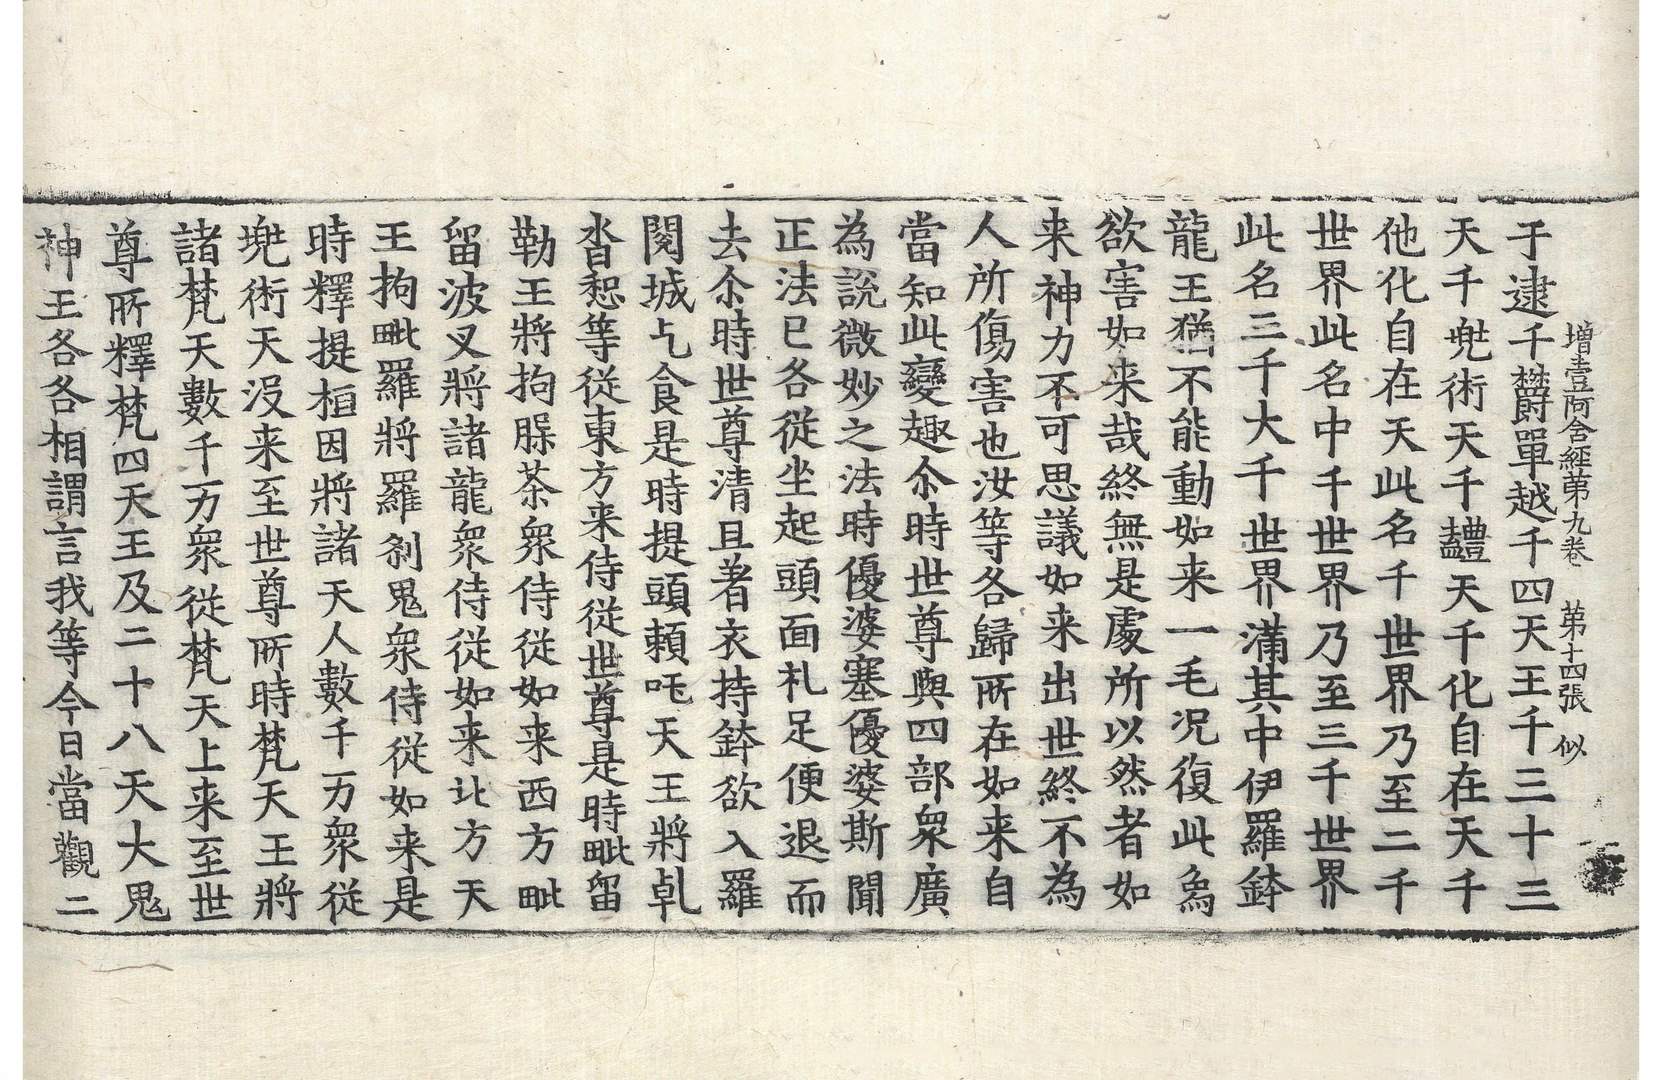 增壹阿含經第九卷 第十四張 似
于逮千欝單越千四天王千三十三
天千兠術天千豔天千化自在天千
他化自在天此名千世界乃至二千
世界此名中千世界乃至三千世界
此名三千大千世界滿其中伊羅鉢
龍王猶不能動如来一毛況復此烏
欲害如来哉終無是處所以然者如
来神力不可思議如来出世終不為
人所傷害也汝等各歸所在如来自
當知此變趣尒時世尊與四部衆廣
為説微妙之法時優婆塞優婆斯聞
正法已各從坐起頭面札足便退而
去尒時世尊清旦著衣持鉢欲入羅
閱城乞食是時提頭頼吒天王將乹
沓惒等從東方来侍從世尊是時毗留
勒王將拘䐗荼衆侍從如来西方毗
留波叉將諸龍衆侍從如来北方天
王拘毗羅將羅刹鬼衆侍從如来是
時釋提桓因將諸天人數千万衆從
兠術天沒来至世尊所時梵天王將
諸梵天數千万衆從梵天上来至世
尊所釋梵四天王及二十八天大鬼
神王各各相謂言我等今日當觀二